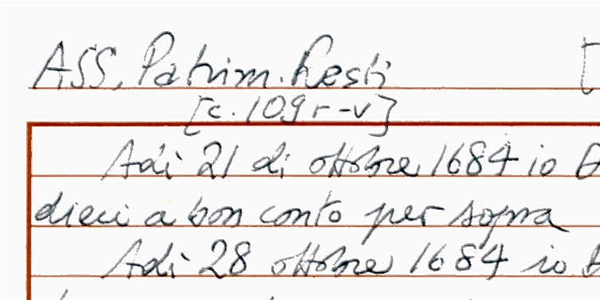 ASS, Patrim. Resti [
[c. 109r-v]
Adì 21 di ottobre 1684 io
dieci a bon conto per sopra
Adì 28 ottobre 1684 io